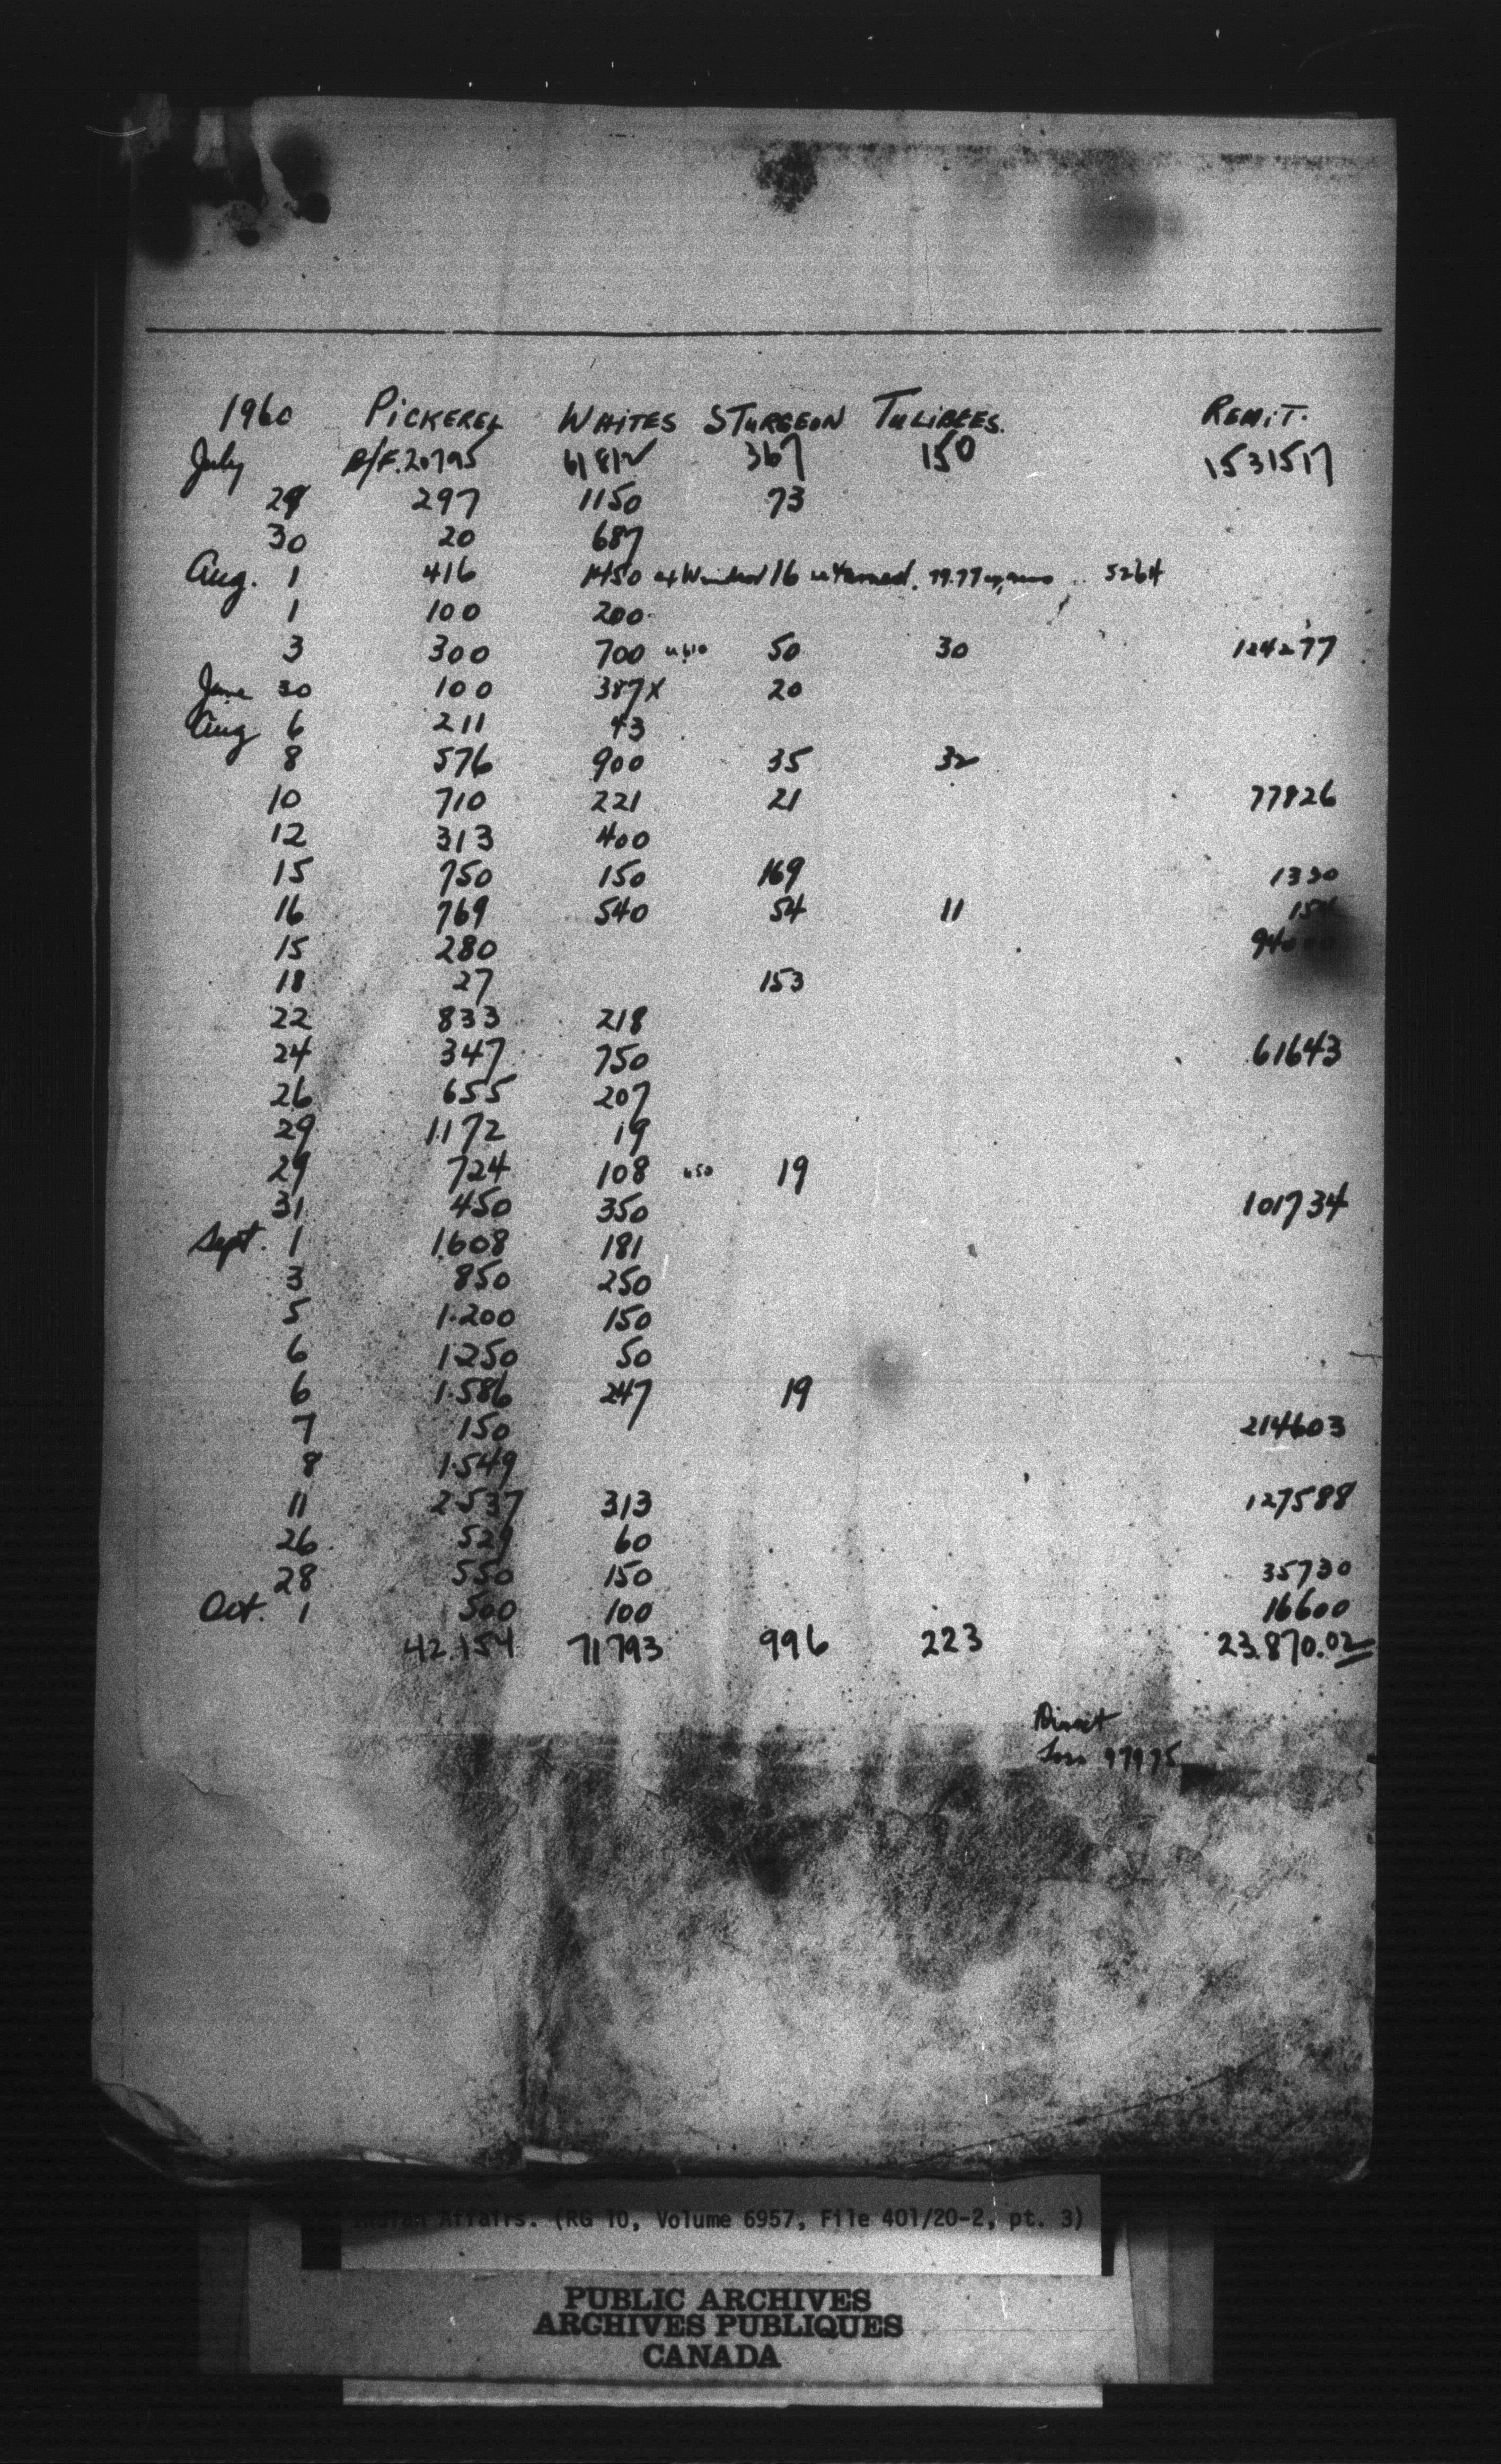 1960 PICKEREL WHITES STURGEON TULIBEES. REMIT.
July B/F. 20795 61812 367 150 1531517
29 297 1150 73
30 20 687
Aug. 1 416 1450 16 returned. 79.77 5264
1 100 200
3 300 700 50 30 124277
June 30 100 387x 20
Aug 6 211 43
8 576 900 35 32
10 710 221 21 77826
12 313 400
15 750 150 169 1330
16 769 540 54 11
15 280 94000
18 27 153
22 833 218
24 347 750 61643
26 655 207
29 1172 19
29 724 108 19
31 450 350 101734
Sept. 1 1608 181
3 850 250
5 1.200 150
6 1250 50
6 1.586 247 19
7 150 214603
8 1.549
11 2537 313 127588
26 529 60
28 550 150 35730
Oct. 1 500 100 16600
42.154 71793 996 223 23.870.02
Direct
Loss 97975
Indian Affairs. (RG 10, Volume 6957, File 401/20-2, pt. 3)
PUBLIC ARCHIVES
ARCHIVES PUBLIQUES
CANADA